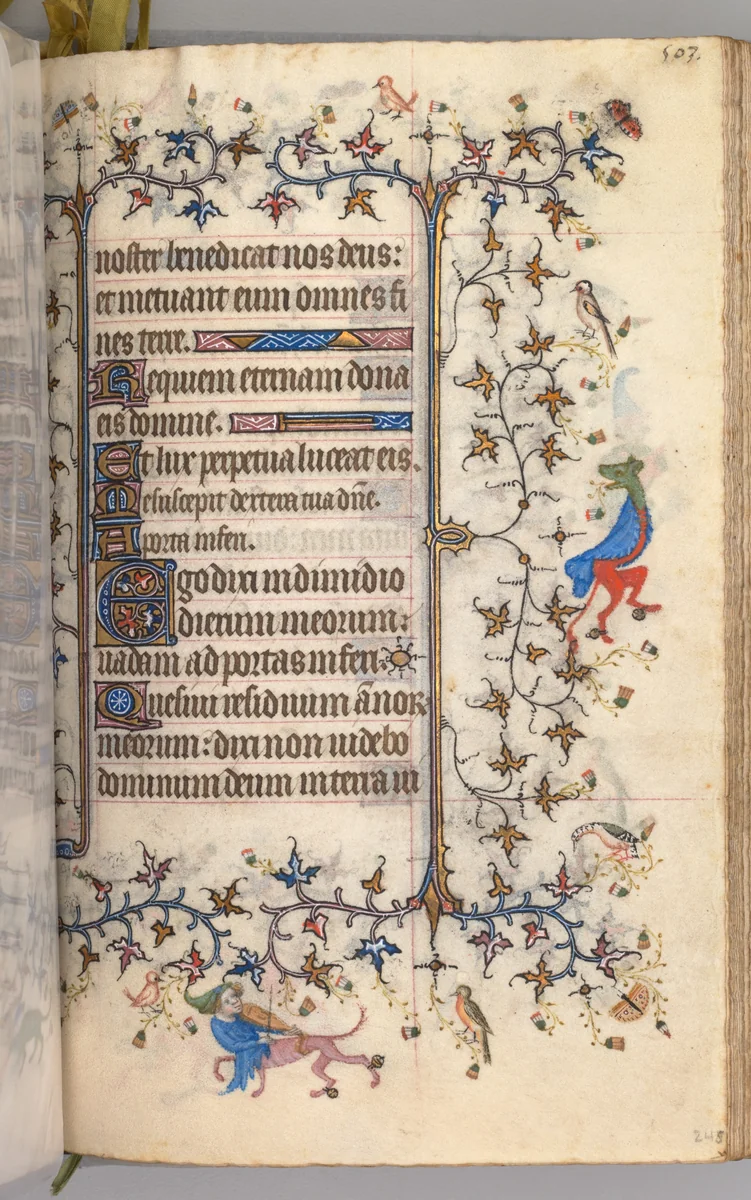 503.
noster benedicat nos deus:
et metuant eum omnes fi
nes terre.
Requiem eternam dona
eis domine.
Et lux perpetua luceat eis.
Me suscepit dextera tua dñe.
A porta inferi.
Ego dixi in dimidio
dierum meorum:
uadam ad portas inferi.
Quesiui residuum ãnor
meorum: dixi non uidebo
dominum deum in terra ui
245